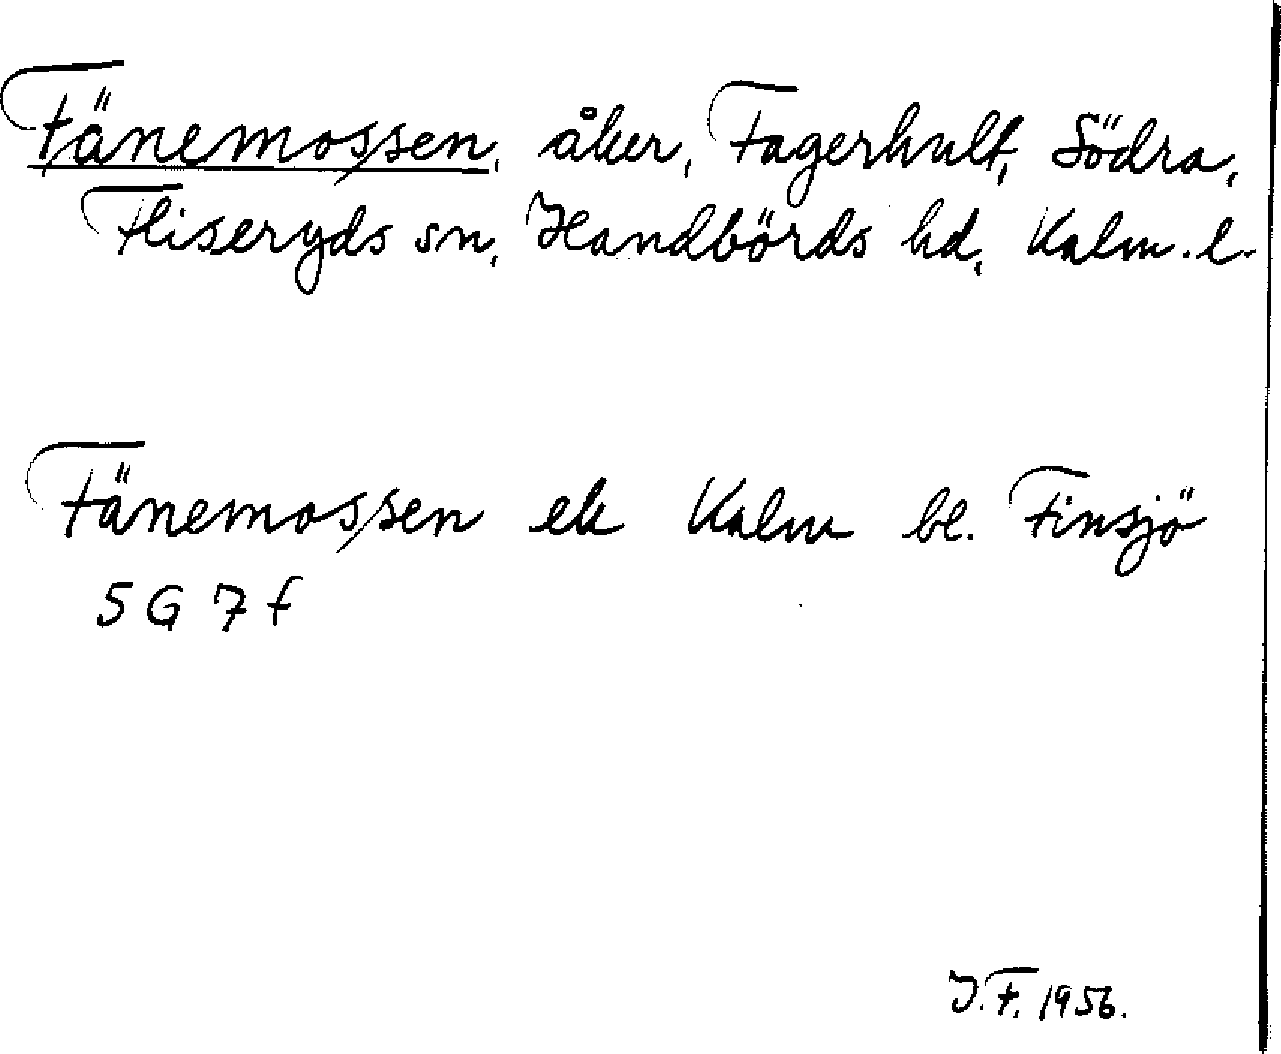 Fänemossen, åker, Fagerhult, Södra,
Fliseryds sn, Handbörds hd, Kalm. l.
Fänemossen ek Kalm bl. Finsjö
5 G 7 f
J. F. 1956.